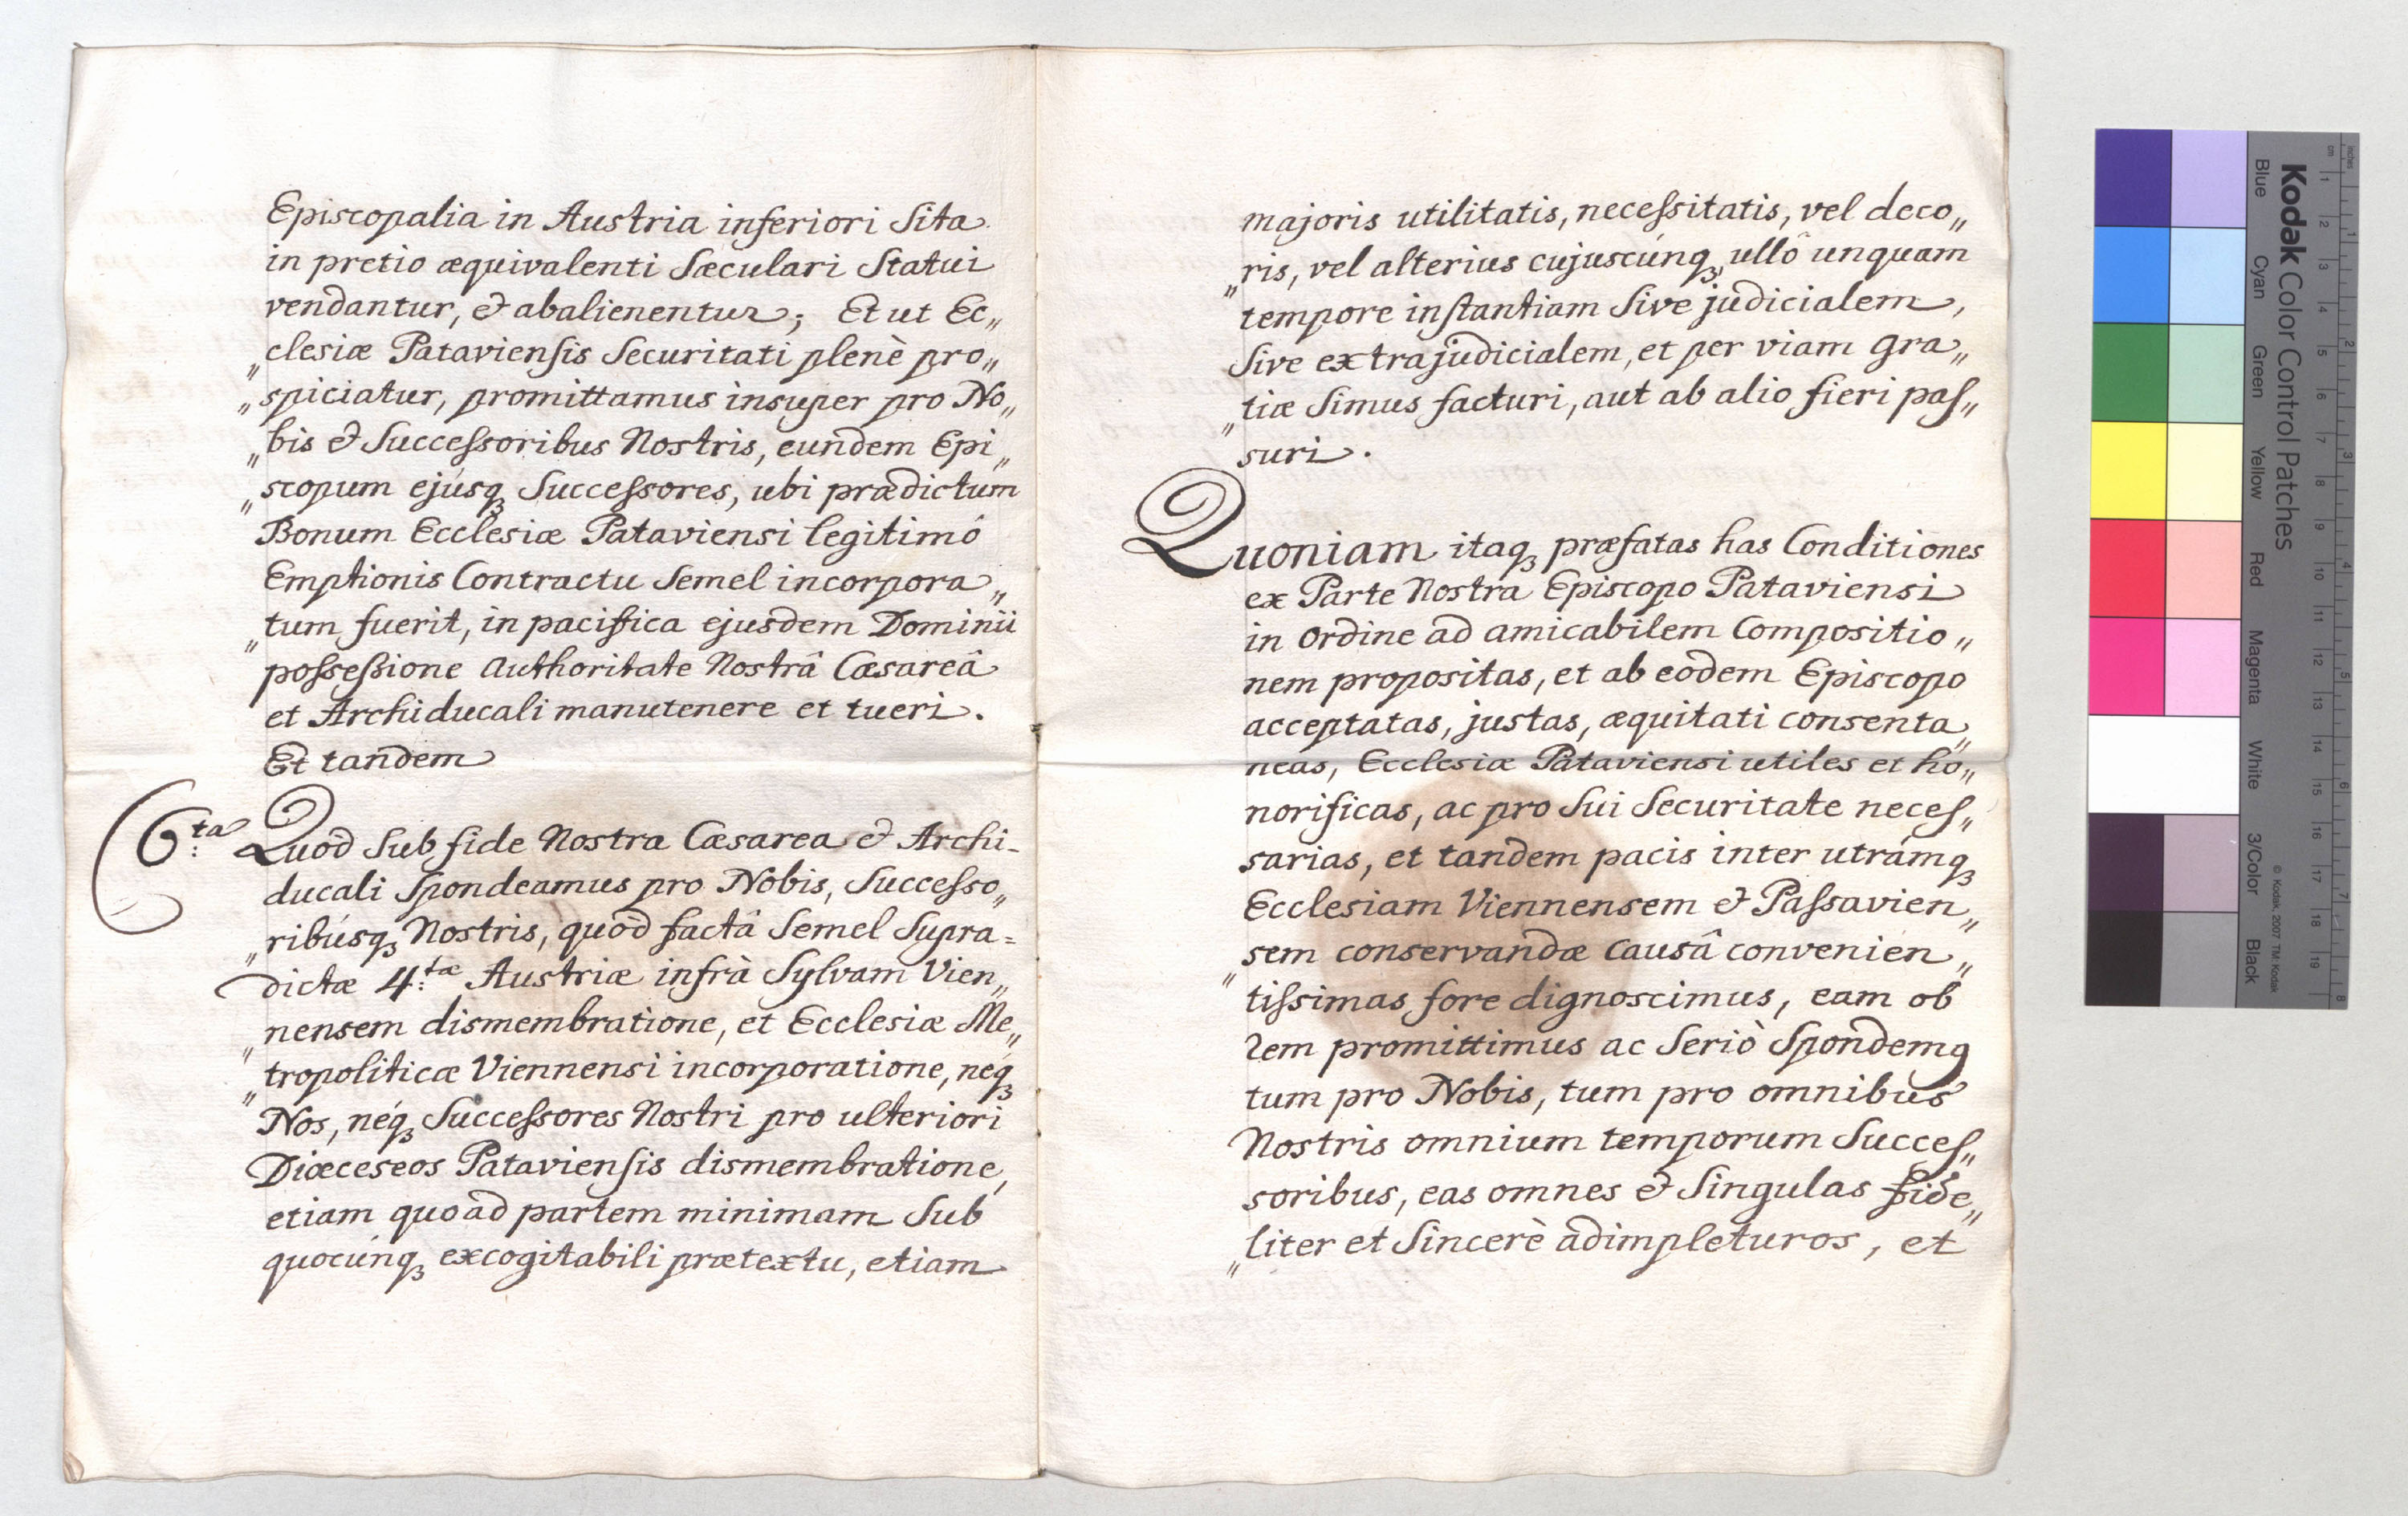 Episcopalia in Austria inferiori Sita
in pretio æquivalenti Sæculari Statui
vendantur, & abalienentur; Et ut Ec„
„clesiæ Pataviensis Securitati plenè pro„
„spiciatur, promittamus insuper pro No„
„bis & Successoribus Nostris, eundem Epi„
„scopum ejúsq3 Successores, ubi prædictum
Bonum Ecclesiæ Pataviensi legitimô
Emptionis Contractu Semel incorpora„
„tum fuerit, in pacifica ejusdem Dominii
possessione Authoritate Nostrâ Cæsareâ
et Archiducali manutenere et tueri.
Et tandem
6:ta Quòd Sub fide Nostra Cæsarea & Archi-
ducali Spondeamus pro Nobis, Successo„
„ribúsq3 Nostris, quòd factâ Semel Supra=
dictæ 4:tæ Austriæ infrà Sylvam Vien„
„nensem dismembratione, et Ecclesiæ Me„
„tropoliticæ Viennensi incorporatione, neq3
Nos, néq3 Successores Nostri pro ulteriori
Diœceseos Pataviensis dismembratione,
etiam quoad partem minimam Sub
quocúnq3 excogitabili prætextu, etiam
majoris utilitatis, necessitatis, vel deco„
„ris, vel alterius cujuscúnq3 ullô unquam
tempore instantiam Sive judicialem,
Sive extrajudicialem, et per viam gra„
„tiæ Simus facturi, aut ab alio fieri pas„
suri.
Quoniam itaq3 præfatas has Conditiones
ex Parte Nostra Episcopo Pataviensi
in ordine ad amicabilem Compositio„
nem propositas, et ab eodem Episcopo
acceptatas, justas, æquitati consenta„
neas, Ecclesiæ Pataviensi utiles et ho„
norificas, ac pro Sui Securitate neces„
sarias, et tandem pacis inter utrámq3
Ecclesiam Viennensem & Passavien„
„sem conservandæ Causâ convenien„
tissimas fore dignoscimus, eam ob
rem promittimus ac Seriò Spondemꝯ
tum pro Nobis, tum pro omnibus
Nostris omnium temporum Succes„
soribus, eas omnes & Singulas fide„
„liter et Sincerè adimpleturos, et
inches
cm
1 2 3 4 5 6 7 8 9 10 11 12 13 14 15 16 17 18 19
1 2 3 4 5 6 7 8
Kodak Color Control Patches
© Kodak, 2007 TM: Kodak
Blue Cyan Green Yellow Red Magenta White 3/Color Black